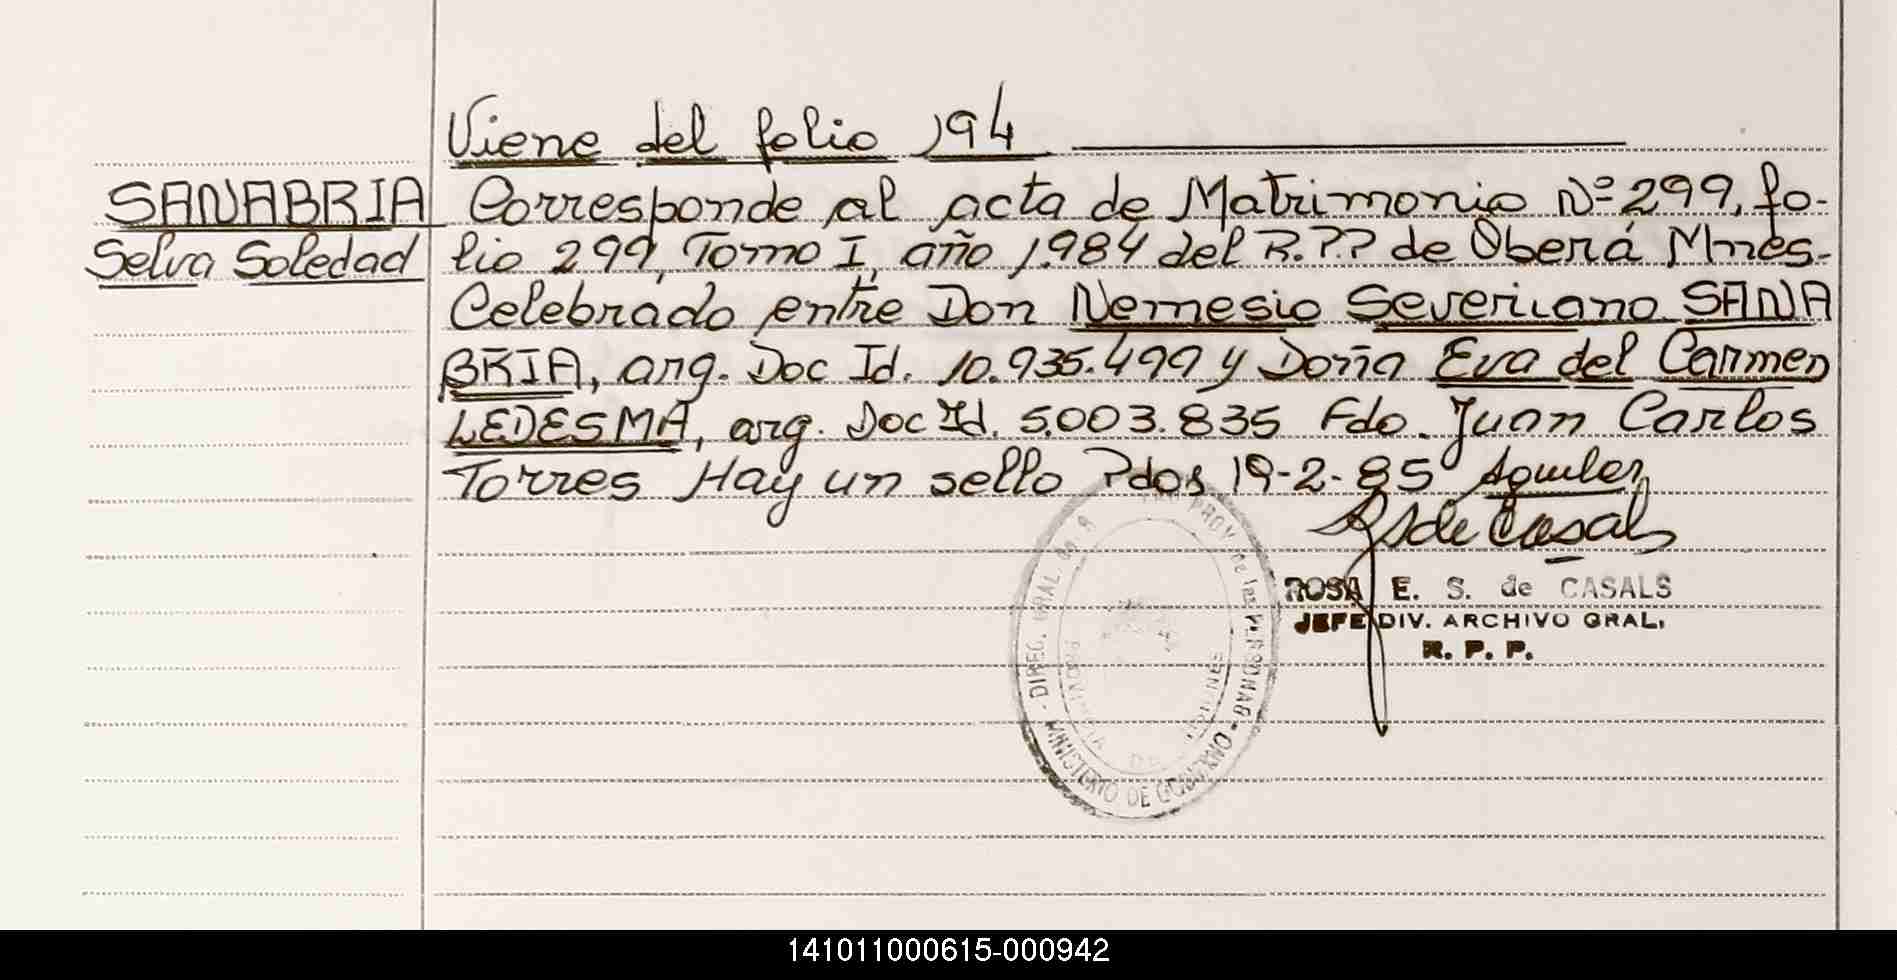 Viene del folio 194
SANABRIA
Selva Soledad
Corresponde al acta de Matrimonio Nº 299, fo-
lio 299, Tomo I, año 1.984 del R.P.P de Oberá Mnes.
Celebrado entre Don Nemesio Severiano SANA
BRIA, arg. Doc Id. 10.935.499 y Doña Eva del Carmen
LEDESMA, arg. Doc Id. 5.003.835 Fdo. Juan Carlos
Torres Hay un sello Pdos 19-2-85
de Casals
ROSA E. S. de CASALS
JEFE DIV. ARCHIVO GRAL.
R. P. P.
DIREC. GRAL. PROV. de las PERSONAS
MINISTERIO DE GOBIERNO
141011000615-000942